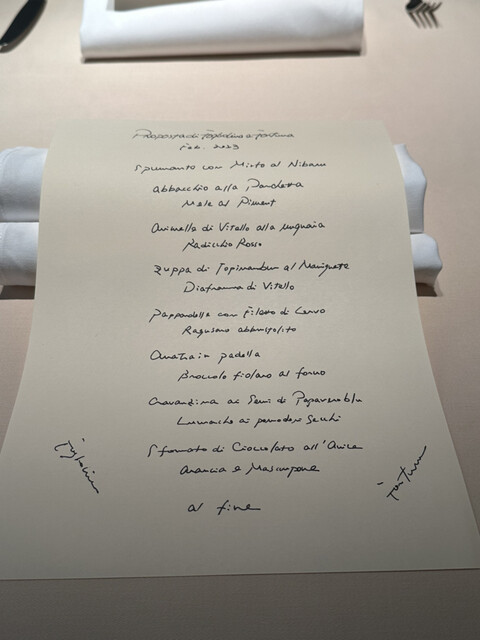 Proposta di Fortuna
Feb. 2023
Spumante con Mirto al Nibaru
abbacchio alla Pancetta
Mele al Piment
animella di Vitello alla mugnaia
Radicchio Rosso
zuppa di Topinambur al
Diaframma di Vitello
pappardelle con Filetto di Cervo
Ragusano
in padella
Broccolo fiolaro al forno
ai Semi di Papavero blu
Lumache ai pomodori Secchi
Sformato di Cioccolato all'Anice
arancia e Mascarpone
al fine